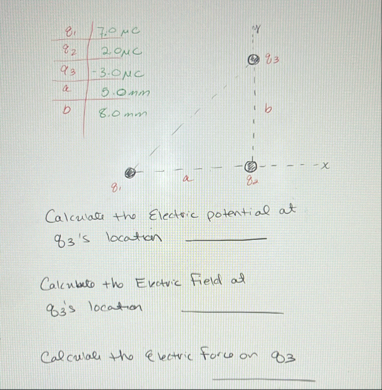 q1 7.0 μC
q2 2.0 μC
q3 -3.0 μC
a 5.0 mm
b 8.0 mm
y
q3
b
x
a
q1
q2
Calculate the Electric potential at
q3's location
Calculate the Electric Field at
q3's location
Calculate the Electric Force on q3